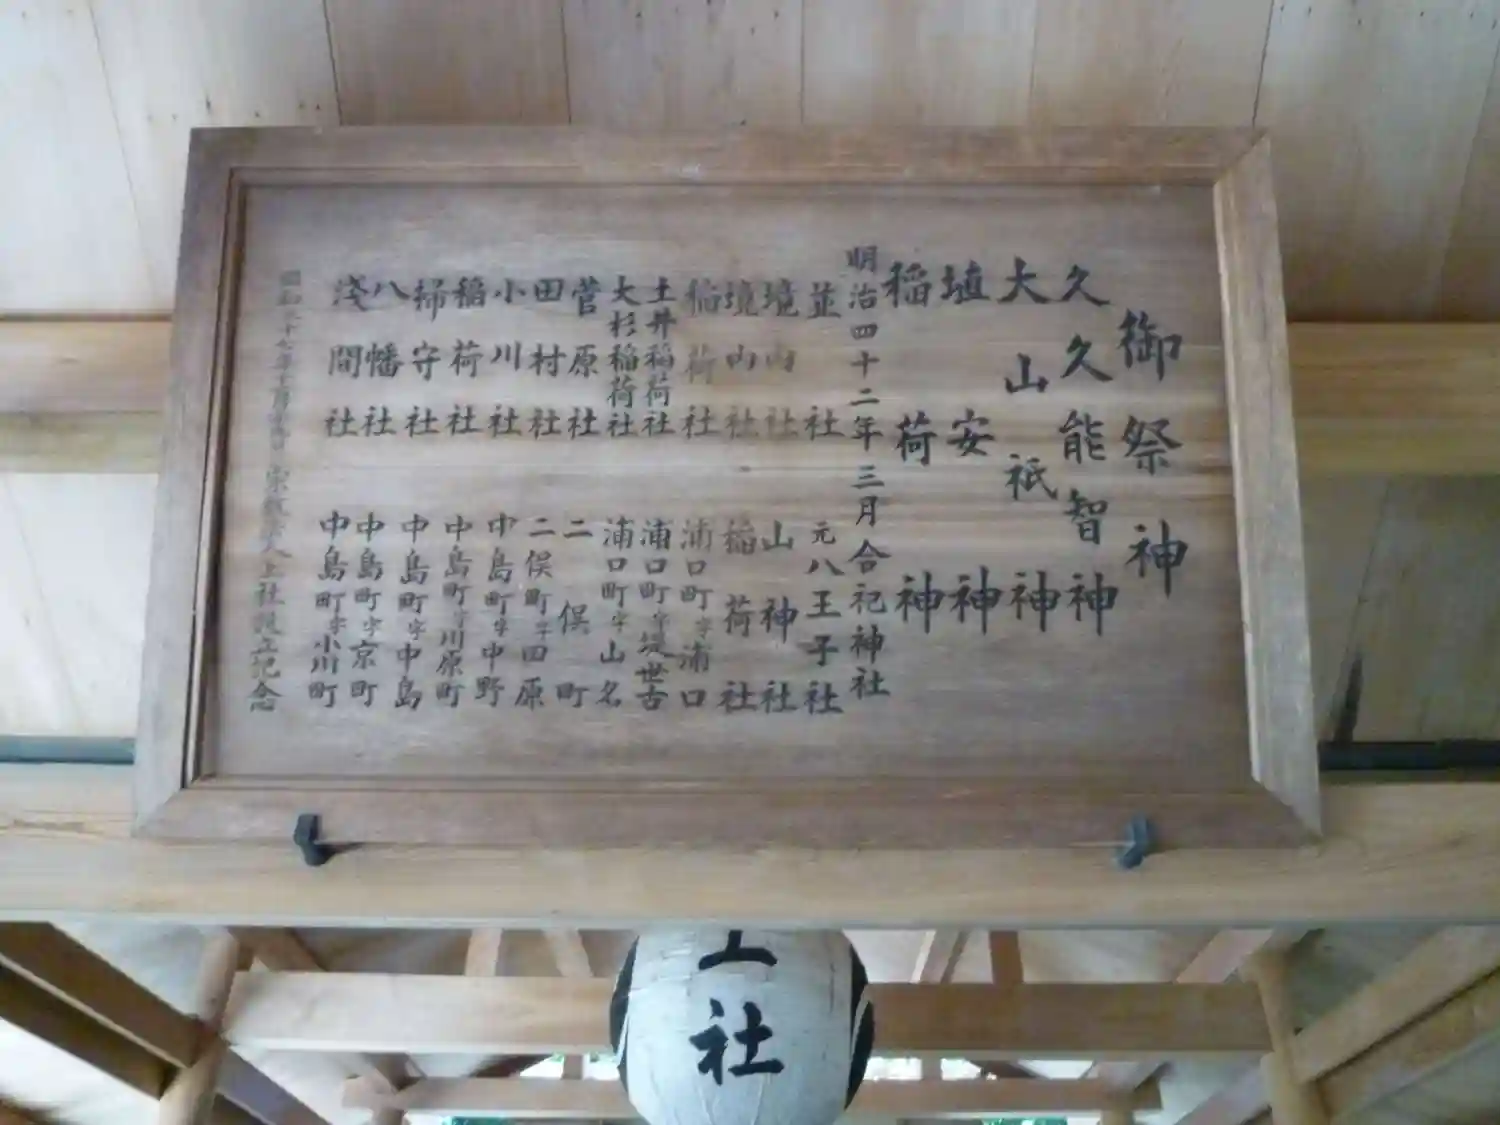 御祭神
久久能智神
大山祇神
埴安神
稲荷神
明治四十二年三月合祀神社
並社 元八王子社
境内社 山神社
境内社 稲荷社
稲荷社 浦口町字浦口
土井稲荷社 浦口町字堤世古
大杉稲荷社 浦口町字山名
菅原社 二俣町
田村社 二俣町字田原
小川社 中島町字中野
稲荷社 中島町字川原町
掃守社 中島町字中島
八幡社 中島町字京町
浅間社 中島町字小川町
上社設立記念
上社